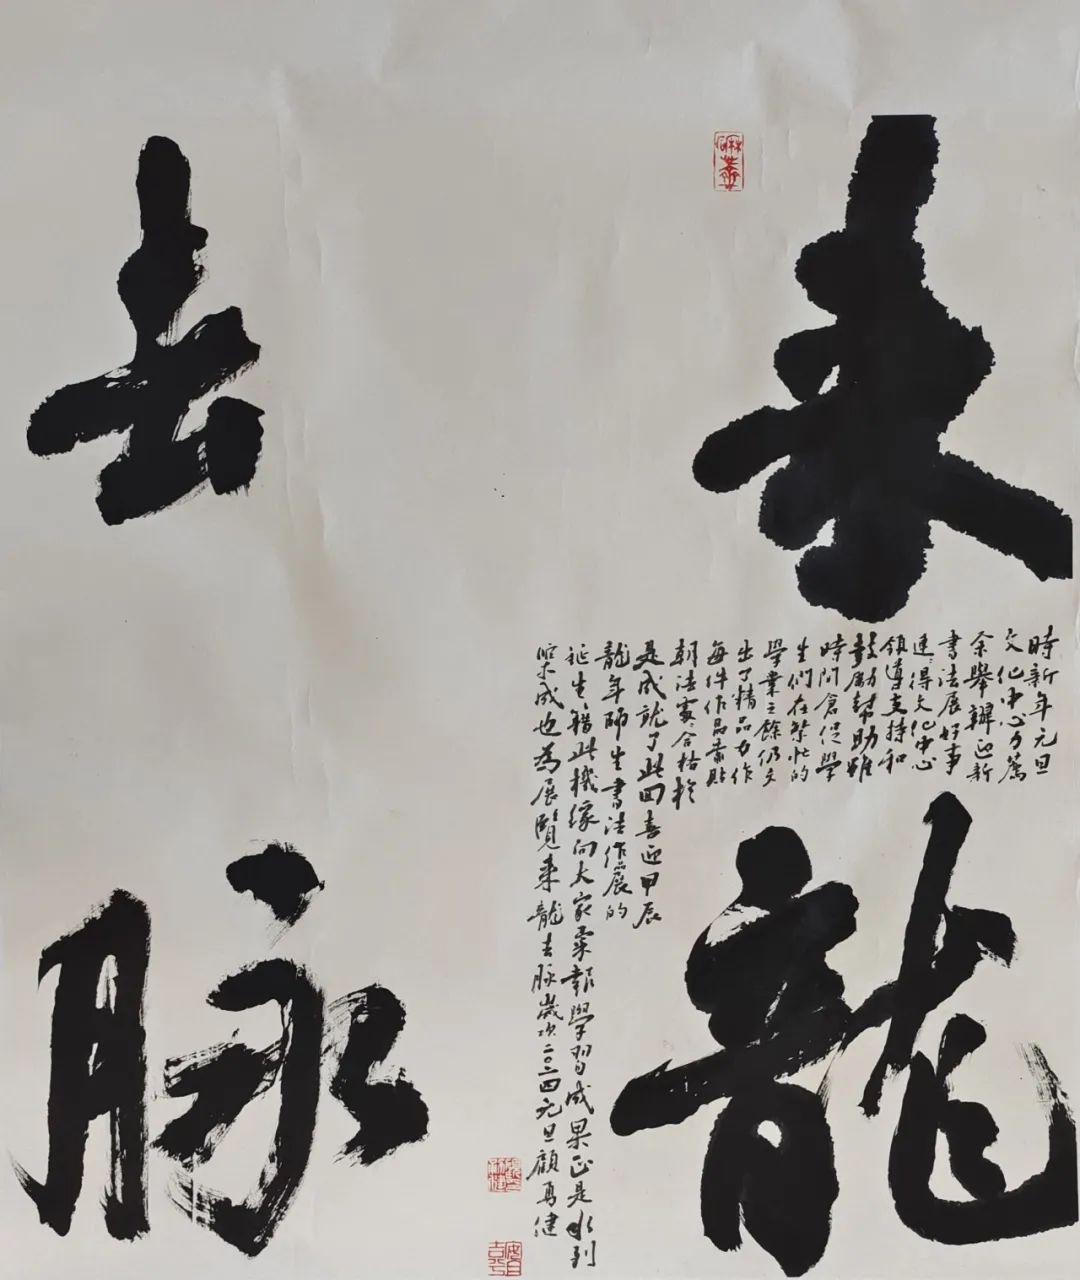 来龍
去脉
時新年元旦
文化中心方舊
余舉辦迎新
書法展好事
連連得文化中心
領導支持和
鼓励幫助雖
時间倉促學
生們在繁忙的
學業之餘仍交
出了精品力作
每件作品
朝法家合格於
是成就了此回喜迎甲辰
龍年師生書法作展的
诞生籍此機缘向大家彙報學習成果正是水到
渠成也為展覽来龍去脉歲次二〇二四元旦顧馬健